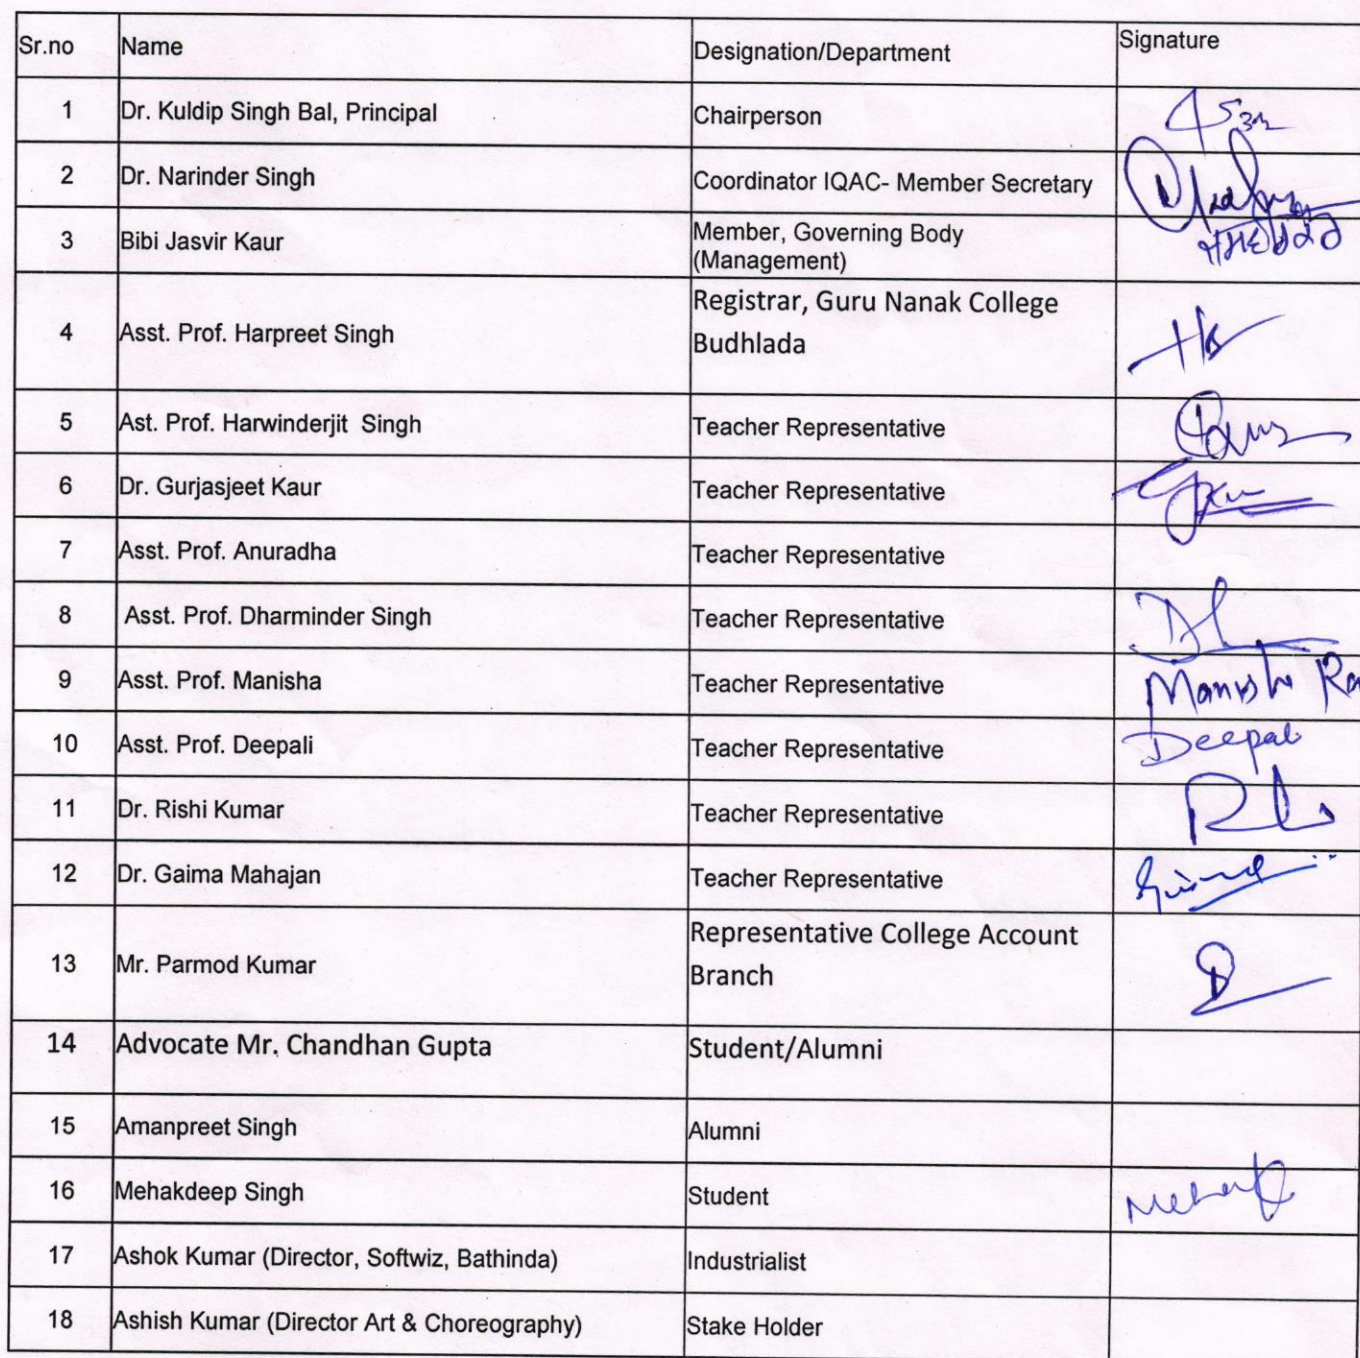 Sr.no Name Designation/Department Signature
1 Dr. Kuldip Singh Bal, Principal Chairperson
2 Dr. Narinder Singh Coordinator IQAC- Member Secretary
3 Bibi Jasvir Kaur Member, Governing Body
(Management)
4 Asst. Prof. Harpreet Singh Registrar, Guru Nanak College
Budhlada
5 Ast. Prof. Harwinderjit Singh Teacher Representative
6 Dr. Gurjasjeet Kaur Teacher Representative
7 Asst. Prof. Anuradha Teacher Representative
8 Asst. Prof. Dharminder Singh Teacher Representative
9 Asst. Prof. Manisha Teacher Representative Manisha
10 Asst. Prof. Deepali Teacher Representative Deepali
11 Dr. Rishi Kumar Teacher Representative
12 Dr. Gaima Mahajan Teacher Representative
13 Mr. Parmod Kumar Representative College Account
Branch
14 Advocate Mr. Chandhan Gupta Student/Alumni
15 Amanpreet Singh Alumni
16 Mehakdeep Singh Student
17 Ashok Kumar (Director, Softwiz, Bathinda) Industrialist
18 Ashish Kumar (Director Art & Choreography) Stake Holder